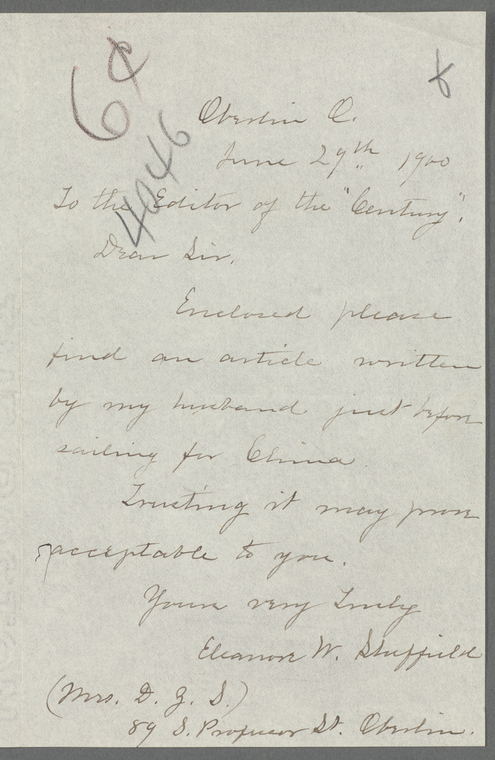 6¢
x
4046
Oberlin O.
June 29th 1900
To the Editor of the "Century".
Dear Sir,
Enclosed please
find an article written
by my husband just before
sailing for China.
Trusting it may prove
acceptable to you.
Yours very truly
Eleanor W. Sheffield
(Mrs. D. Z. S.)
89 S. Professor St. Oberlin.